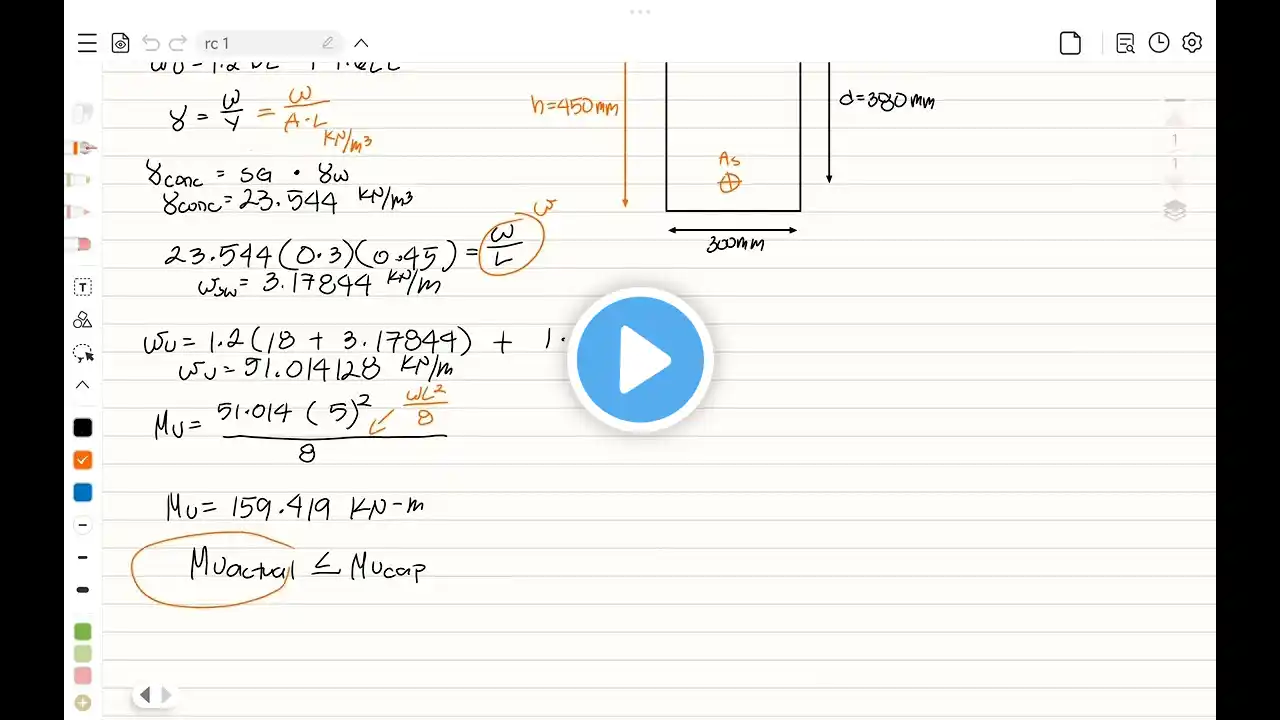 rc 1
γ = W/V = W/A·L
KN/m³
γconc = SG · γw
γconc = 23.544 KN/m³
23.544(0.3)(0.45) = W/L
w
wsw = 3.17844 KN/m
wu = 1.2(18 + 3.17844) + 1.
wu = 51.014128 KN/m
Mu = 51.014 (5)² / 8
wL²/8
Mu = 159.419 KN-m
Muactual ≤ Mucap
h=450mm
d=380mm
As
300mm
1
1
T